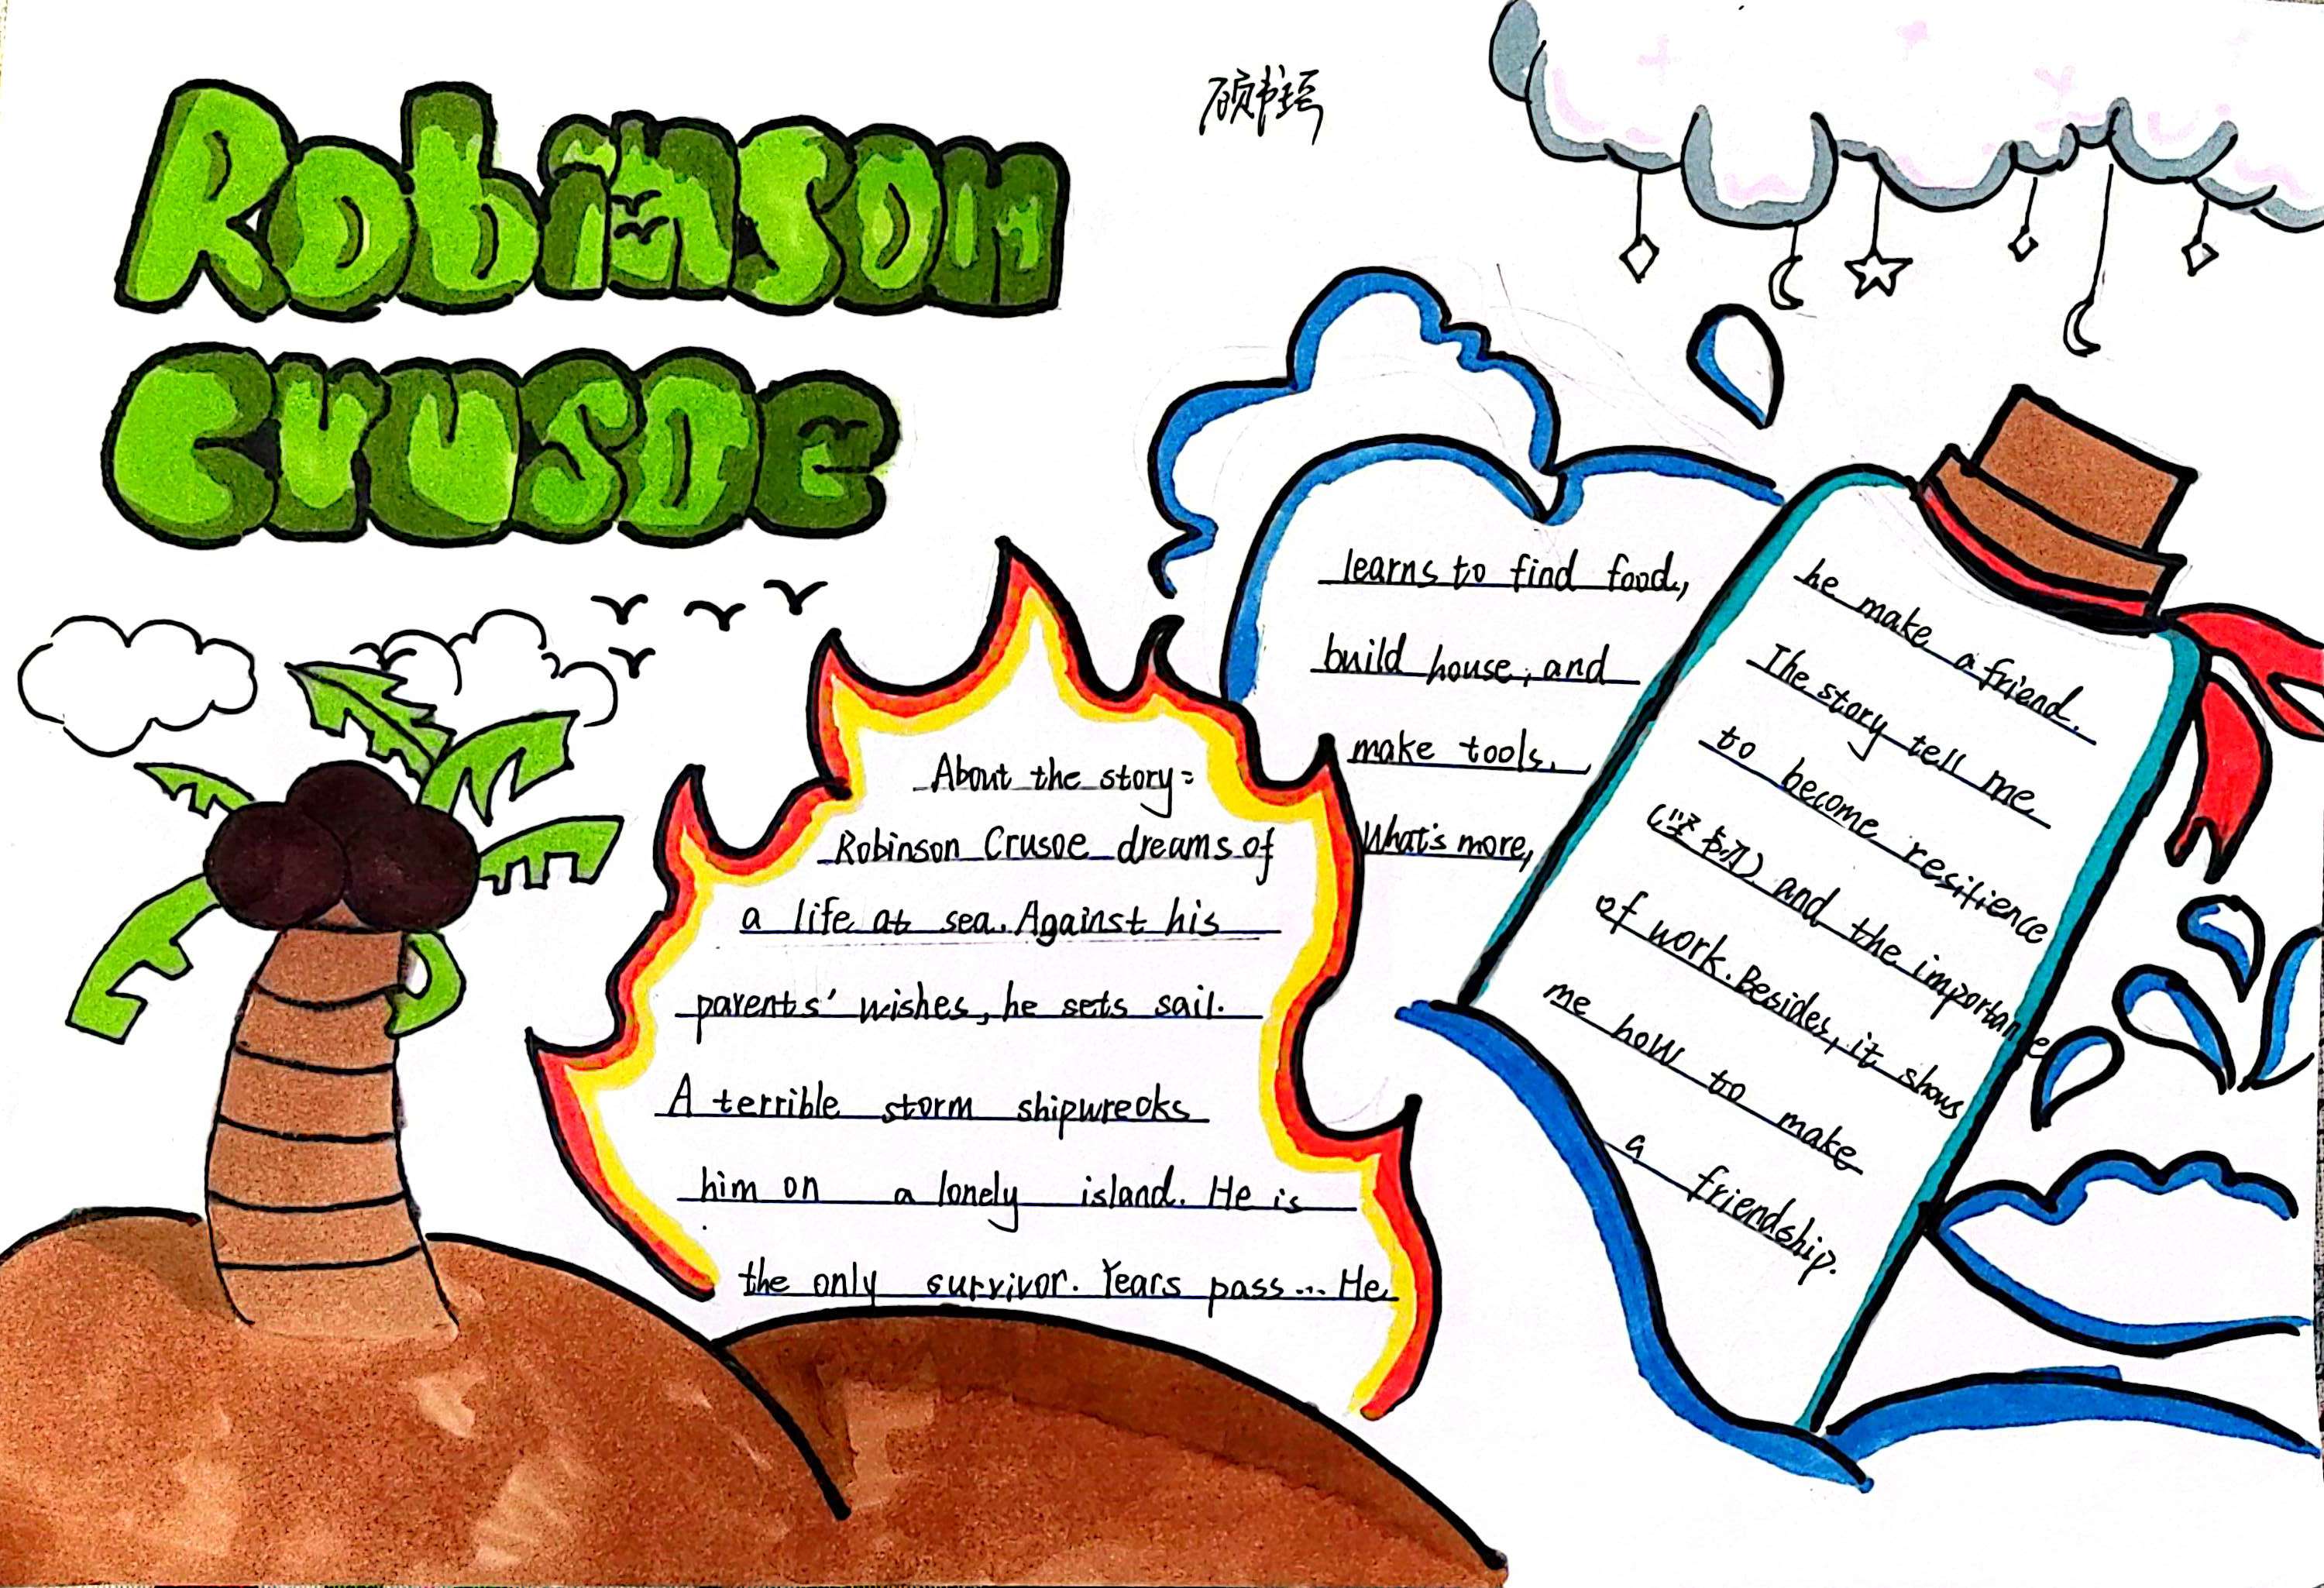 Robinson
Crusoe
About the story:
Robinson Crusoe dreams of
a life at sea. Against his
parents' wishes, he sets sail.
A terrible storm shipwrecks
him on a lonely island. He is
the only survivor. Years pass... He
learns to find food,
build house, and
make tools.
What's more,
he make a friend.
The story tell me
to become resilience
(坚韧) and the importance
of work. Besides, it shows
me how to make
a friendship.